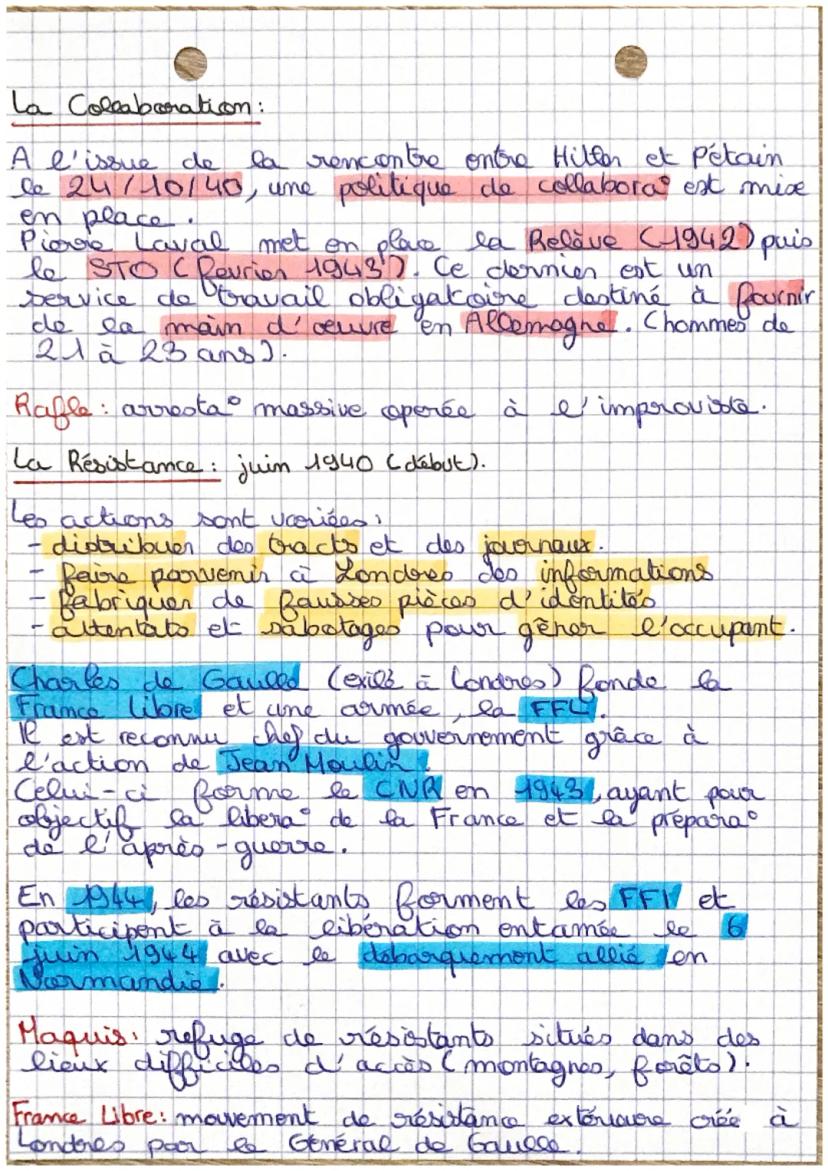 La Collaboration :
A l'issue de la rencontre entre Hitler et Pétain
le 24/10/40, une politique de collabora° est mise
en place.
Pierre Laval met en place la Relève (1942) puis
le STO (Février 1943). Ce dernier est un
service de travail obligatoire destiné à fournir
de la main d'œuvre en Allemagne. (hommes de
21 à 23 ans).
Rafle : arresta° massive operée à l'improviste.
La Résistance : juin 1940 (début).
Les actions sont variées :
- distribuer des tracts et des journaux.
- faire parvenir à Londres des informations
- fabriquer de fausses pièces d'identités
- attentats et sabotages pour gêner l'occupant.
Charles de Gaulle (exilé à Londres) fonde la
France Libre et une armée, la FFL.
Il est reconnu chef du gouvernement grâce à
l'action de Jean Moulin.
Celui-ci forme le CNR en 1943, ayant pour
objectif la libera° de la France et la prépara°
de l'après-guerre.
En 1944, les résistants forment les FFI et
participent à la libération entamée le 6
juin 1944 avec le débarquement allié en
Normandie.
Maquis : refuge de résistants situés dans des
lieux difficiles d'accès (montagnes, forêts).
France Libre : mouvement de résistance extérieure créé à
Londres par le Général de Gaulle.